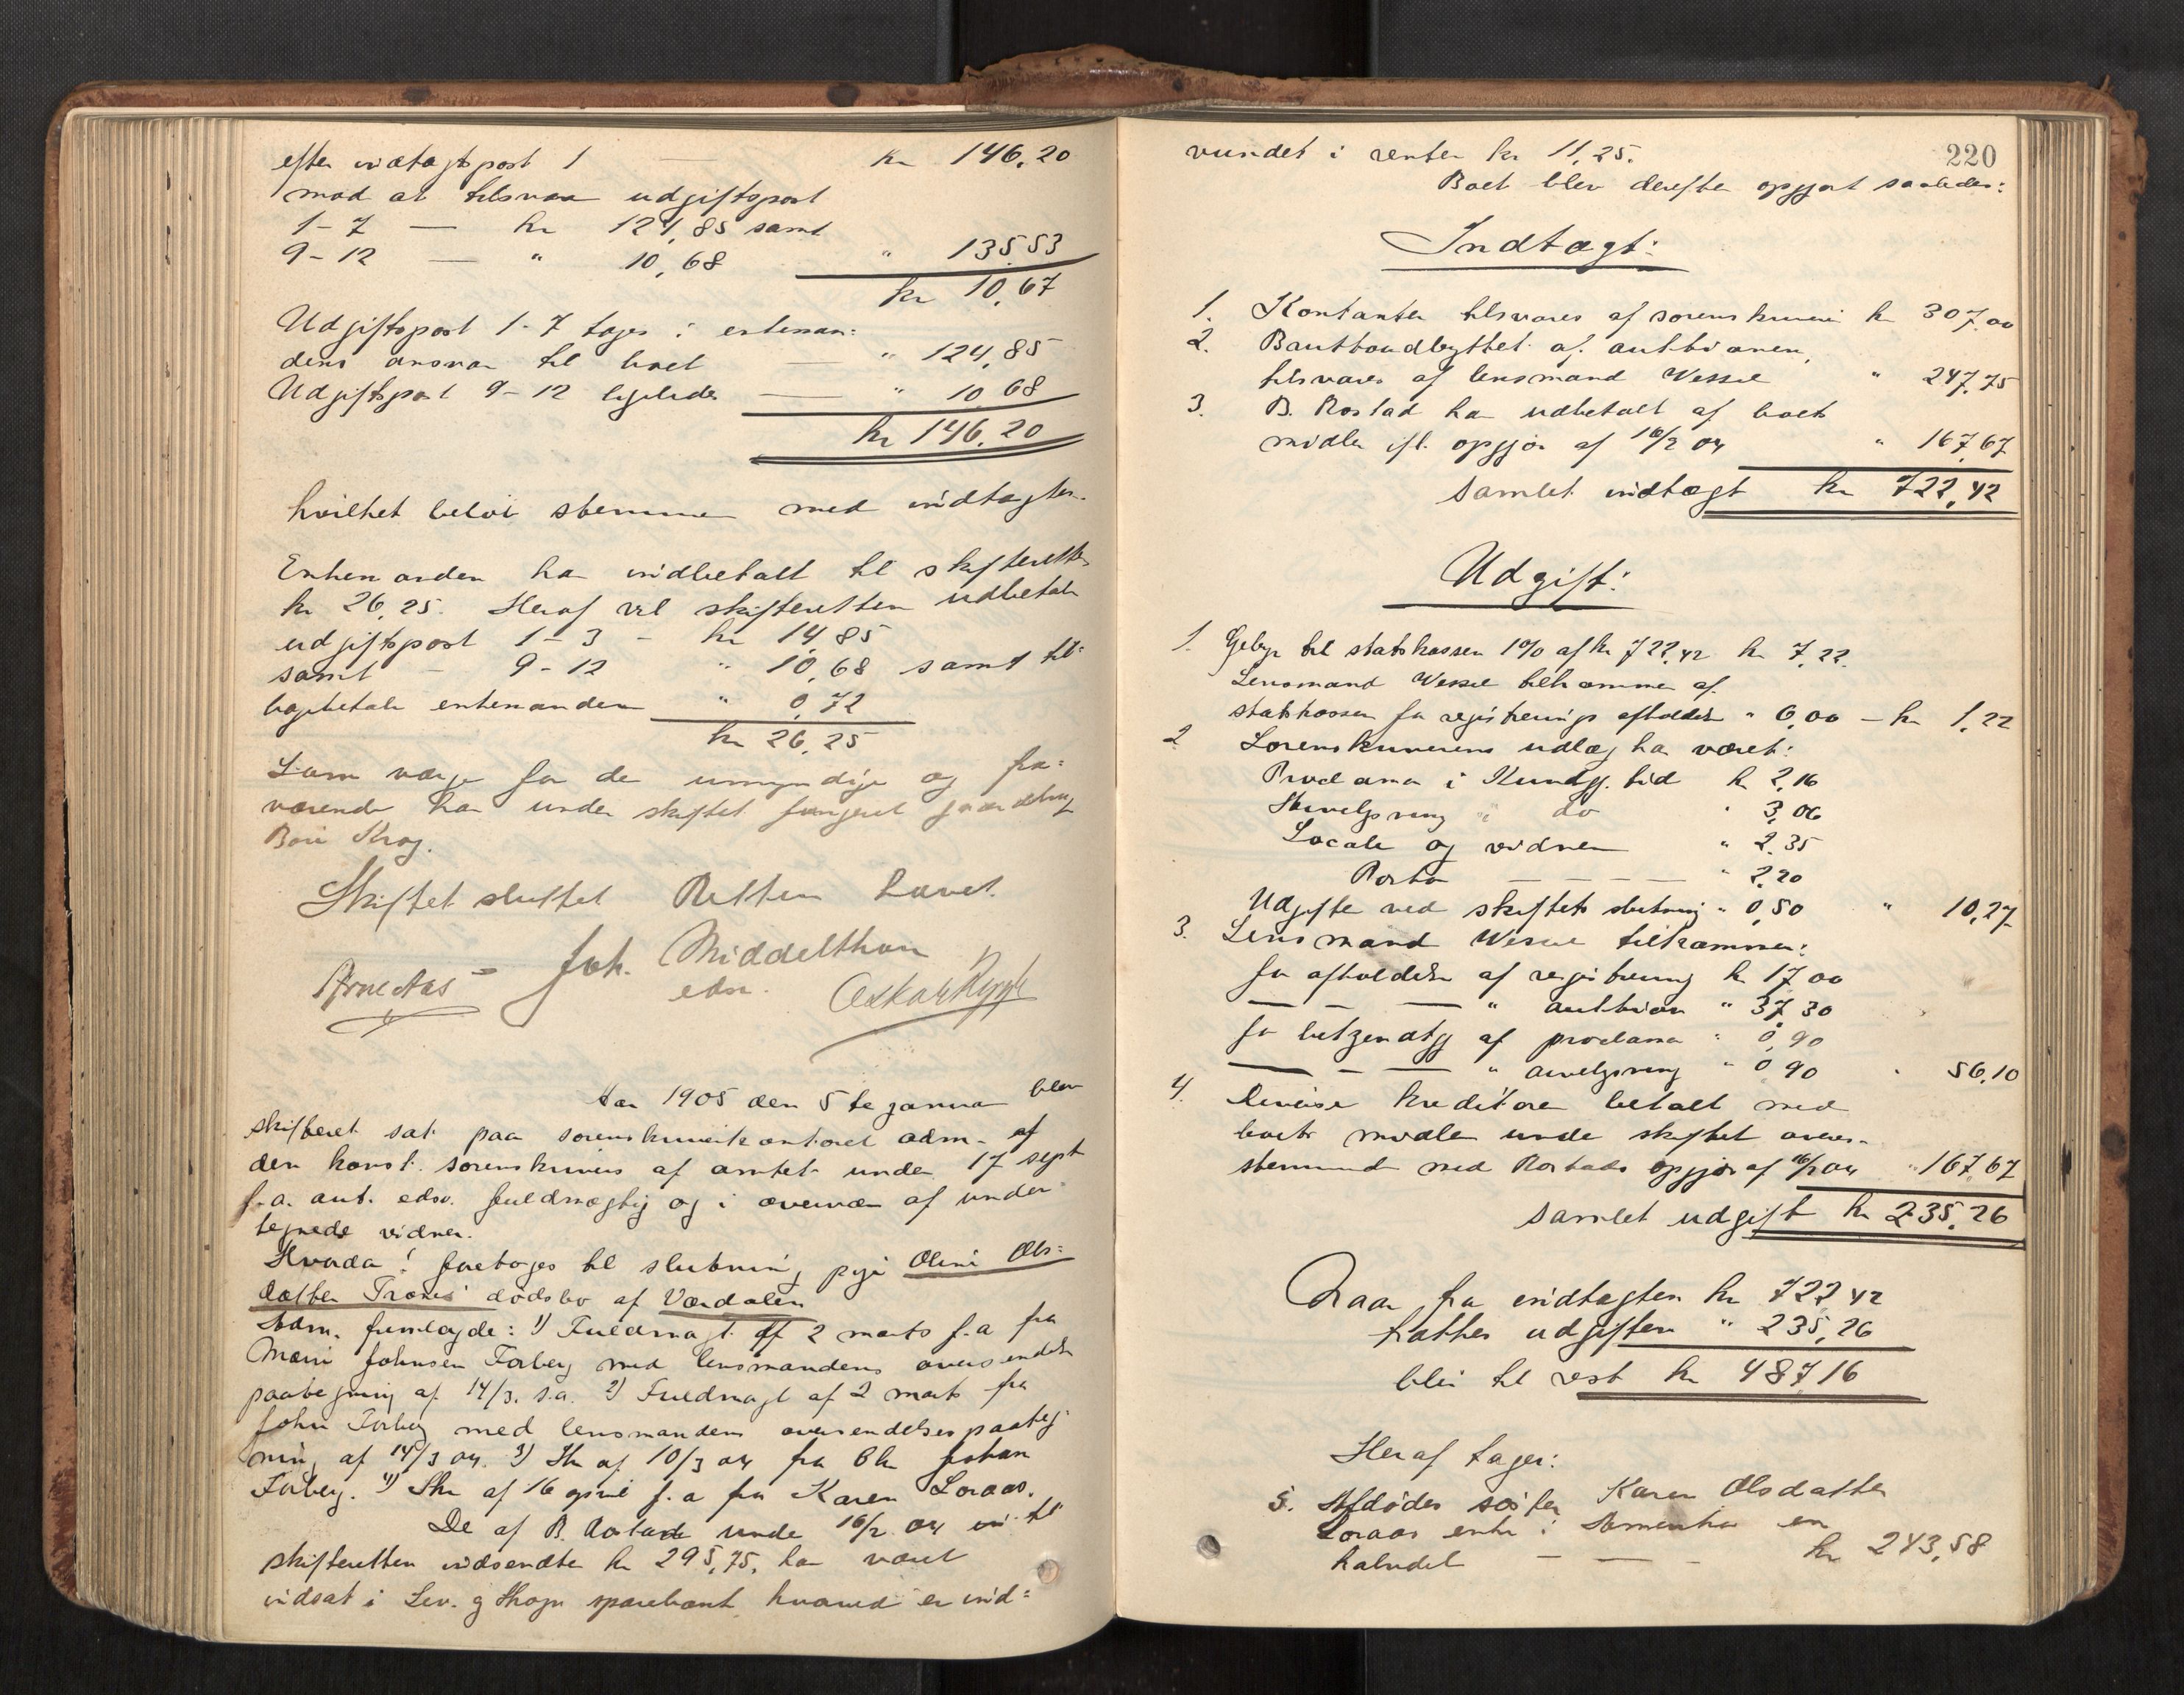 efter indtægtspost 1 — kr 146,20
mod at tilsvare udgiftspost
1-7 — kr 124,85 samt
9-12 — " 10,68 " 135,53
kr 10,67
Udgiftspost 1-7 tages i enkeman-
dens ansvar til boet " 124,85
Udgiftspost 9-12 ligeledes — " 10,68
kr 146,20
hvilket beløb stemmer med indtægten.
Enkemanden har indbetalt til skifteretten
kr 26,25. Heraf vil skifteretten udbetale
udgiftspost 1-3 - kr 14,85
samt - 9-12 " 10,68 samt til-
bagebetale enkemanden " 0,72
kr 26,25
Som værge for de umyndige og fra-
værende har under skiftet fungeret
Krog.
Skiftet sluttet Retten hævet
Joh. Middelthon
Arne Aas edsv. Oskar Rygh
Aar 1905 den 5te januar blev
skifteret sat paa sorenskriverkontoret adm. af
den konst. sorenskrivers af amtet under 17 sept
f.a. aut. edsv. fuldmægtig og i overvær af under-
tegnede vidner.
Hvorda! foretoges til slutning pige Oline Ols-
datter dødsbo af Værdalen
Adm. fremlagde: 1) Fuldmagt af 2 marts f.a fra
Johnsen Forberg med lensmandens oversendelses
paategning af 14/3. s.a. 2) Fuldmagt af 2 marts fra
John Forberg med lensmandens oversendelsespaateg-
ning af 14/3 04. 3) Skr af 10/3 04 fra Johan
Forberg. 4) Skr af 16 april f.a fra Karen Loraas.
De af B. Rostad under 16/2 04 til
skifteretten indsendte kr 295,75, har været
indsat i Lev. og Skogn sparebank hvorved er ind-
220
vundet i renter kr 11,25.
Boet blev derefter opgjort saaledes:
Indtægt:
1. Kontanter tilsvares af sorenskriveren kr 307,00
2. Bruttoudbyttet af auktionen,
tilsvares af lensmand Wessel " 247,75
3. B. Rostad har udbetalt af boets
midler ifl. opgjør af 16/2 04 " 167,67
Samlet indtægt kr 722,42
Udgift:
1. Gebyr til statskassen 1% af kr 722,42 kr 7,22.
Lensmand Wessel tilkommer af
statskassen for registrerings afholdelse " 6,00 — kr 1,22
2 Sorenskriverens udlæg har været:
Proclama i Kundgj. tid kr 2,16
Skivelysning i do " 3,06
Locale og vidner " 2,35
Porto — — — — " 2,20
Udgifter ved skiftets slutning " 0,50 " 10,27
3. Lensmand Wessel tilkommer:
for afholdelse af registrering kr 17,00
— — — " auktion " 37,30
for bekjendtgj af proclama " 0,90
— — — " " 0,90 " 56,10
4. Diverse kreditorer betalt med
boets midler under skiftet overens-
stemmende med Rostads opgjør af 16/2 04 " 167,67
Samlet udgift kr 235,26
Naar fra indtægten kr 722,42
trækkes udgiften " 235,26
blir til rest kr 487,16
Heraf tager:
5. Afdødes søster Karen Olsdatter
Loraas enke i Amerika en
halvdel — — — kr 243,58